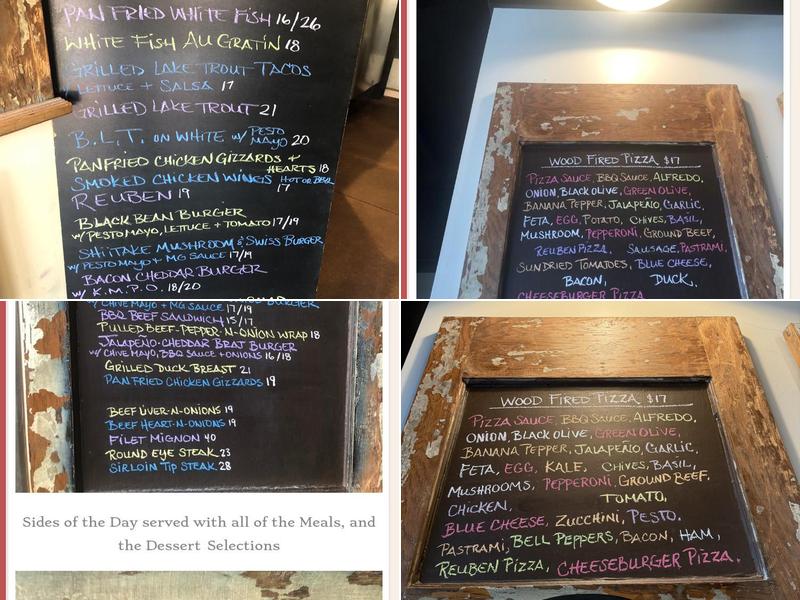 PAN FRIED WHITE FISH 16/26
WHITE FISH AU GRATIN 18
GRILLED LAKE TROUT TACOS
LETTUCE + SALSA 17
GRILLED LAKE TROUT 21
B.L.T. ON WHITE W/ PESTO MAYO 20
PANFRIED CHICKEN GIZZARDS +
HEARTS 18
SMOKED CHICKEN WINGS HOT OR BBQ
17
REUBEN 19
BLACK BEAN BURGER
W/ PESTO MAYO, LETTUCE + TOMATO 17/19
SHIITAKE MUSHROOM & SWISS BURGER
W/ PESTO MAYO + MG SAUCE 17/19
BACON CHEDDAR BURGER
W/ K.M.P.O. 18/20
WOOD FIRED PIZZA $17
PIZZA SAUCE, BBQ SAUCE, ALFREDO,
ONION, BLACK OLIVE, GREEN OLIVE,
BANANA PEPPER, JALAPEÑO, GARLIC,
FETA, EGG, POTATO, CHIVES, BASIL,
MUSHROOM, PEPPERONI, GROUND BEEF,
REUBEN PIZZA, SAUSAGE, PASTRAMI,
SUNDRIED TOMATOES, BLUE CHEESE,
BACON, DUCK,
CHEESEBURGER PIZZA
BURGER
W/ CHIVE MAYO + MG SAUCE 17/19
BBQ BEEF SANDWICH 15/17
PULLED BEEF-PEPPER-N-ONION WRAP 18
JALAPEÑO-CHEDDAR BRAT BURGER
W/ CHIVE MAYO, BBQ SAUCE + ONIONS 16/18
GRILLED DUCK BREAST 21
PAN FRIED CHICKEN GIZZARDS 19
BEEF LIVER-N-ONIONS 19
BEEF HEART-N-ONIONS 19
FILET MIGNON 40
ROUND EYE STEAK 23
SIRLOIN TIP STEAK 28
Sides of the Day served with all of the Meals, and
the Dessert Selections
WOOD FIRED PIZZA $17
PIZZA SAUCE, BBQ SAUCE, ALFREDO,
ONION, BLACK OLIVE, GREEN OLIVE,
BANANA PEPPER, JALAPEÑO, GARLIC,
FETA, EGG, KALE, CHIVES, BASIL,
MUSHROOMS, PEPPERONI, GROUND BEEF,
CHICKEN, TOMATO,
BLUE CHEESE, ZUCCHINI, PESTO,
PASTRAMI, BELL PEPPERS, BACON, HAM,
REUBEN PIZZA, CHEESEBURGER PIZZA.